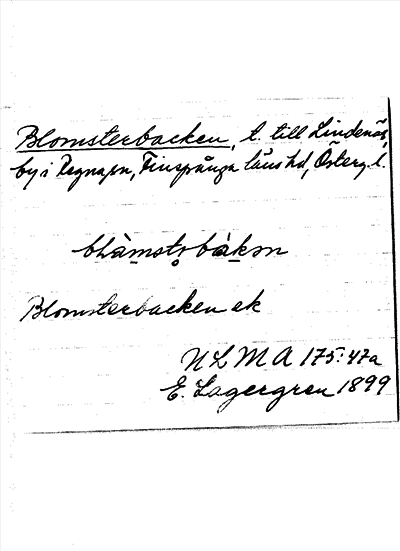 Blomsterbacken, t. till Lindenäs,
by i Regnapn, Finspånga läns hd, Österg. l.
blàmstr̥ bàkən
Blomsterbacken ek
NLMA 175:47a
E. Lagergren 1899